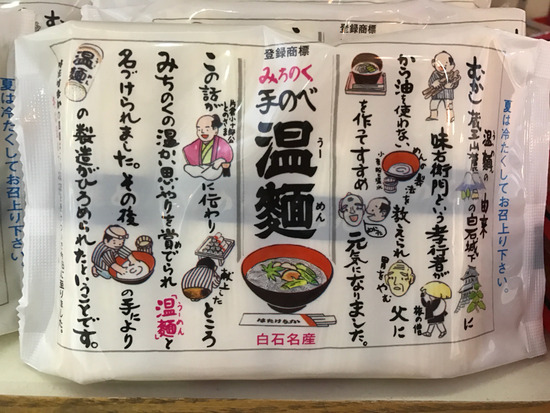 登録商標
みちのく
手のべ
温麺
うー
めん
はたけなか
白石名産
温麺の由来
むかし蔵王山麓の白石城下に
味右衛門という孝行者が
父に
旅の僧
胃をやむ
めんを作る
法を教えられ
から油を使わない
を作ってすすめ
元気になりました。
この話が
片倉小十郎公
に伝わり
献上したところ
みちのくの温かい思いやりを賞でられ
「温麺」と
うーめん
名づけられました。その後
の手により
温麺
の製造がひろめられたということです。
夏は冷たくしてお召上り下さい。
夏は冷たくしてお召上り下さい。
登録商標